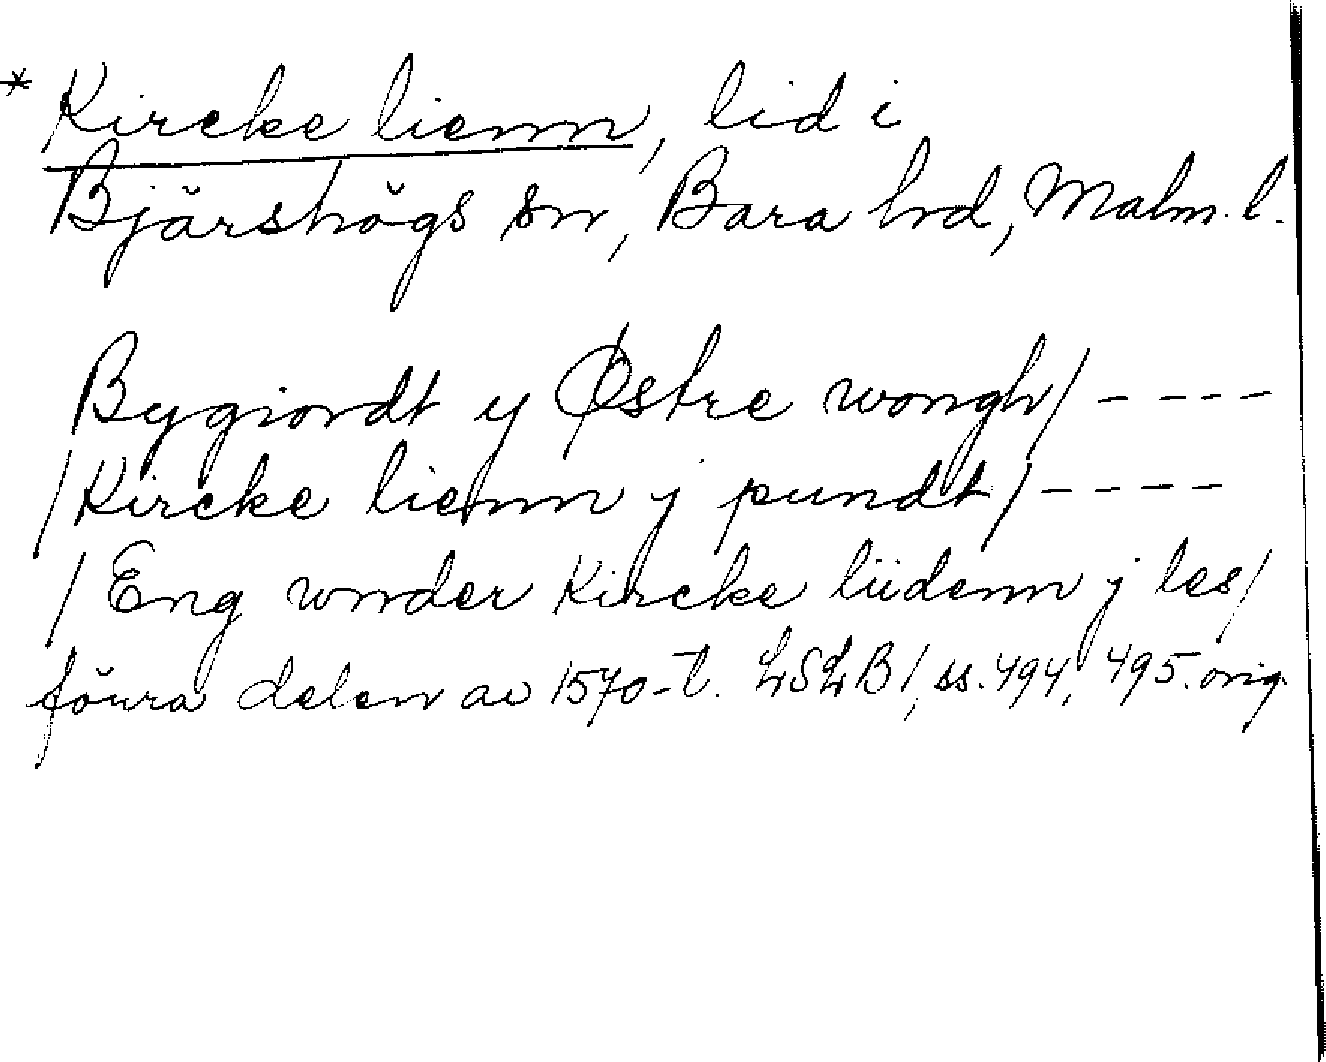 * Kircke lienn, lid i
Bjärshögs sn, Bara hd, Malm. l.
Bygiordt y Østre wongh/ ----
/Kircke lienn j pundt/ ----
/Eng wnder Kircke liidenn j les/
förra delen av 1570-t. LSLB 1, ss. 494, 495. orig.